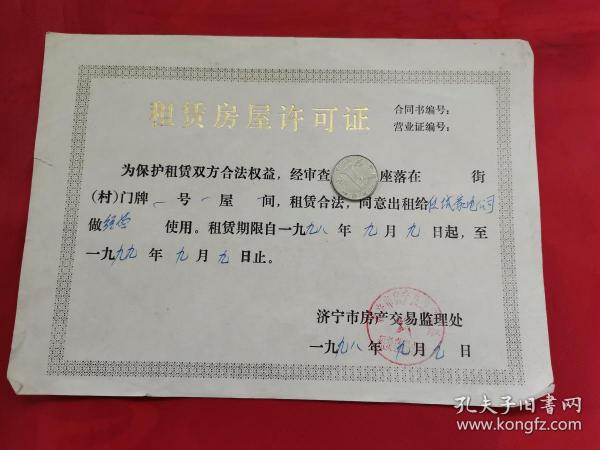 租赁房屋许可证
合同书编号：
营业证编号：
为保护租赁双方合法权益，经审查 座落在 街
(村)门牌 一 号 一 屋 间，租赁合法，同意出租给 家电公司
做 经营 使用。租赁期限自一九九八年九月九日起，至
一九九九年九月九日止。
济宁市房产交易监理处
一九九八年九月九日
孔夫子旧书网
www.kongfz.com